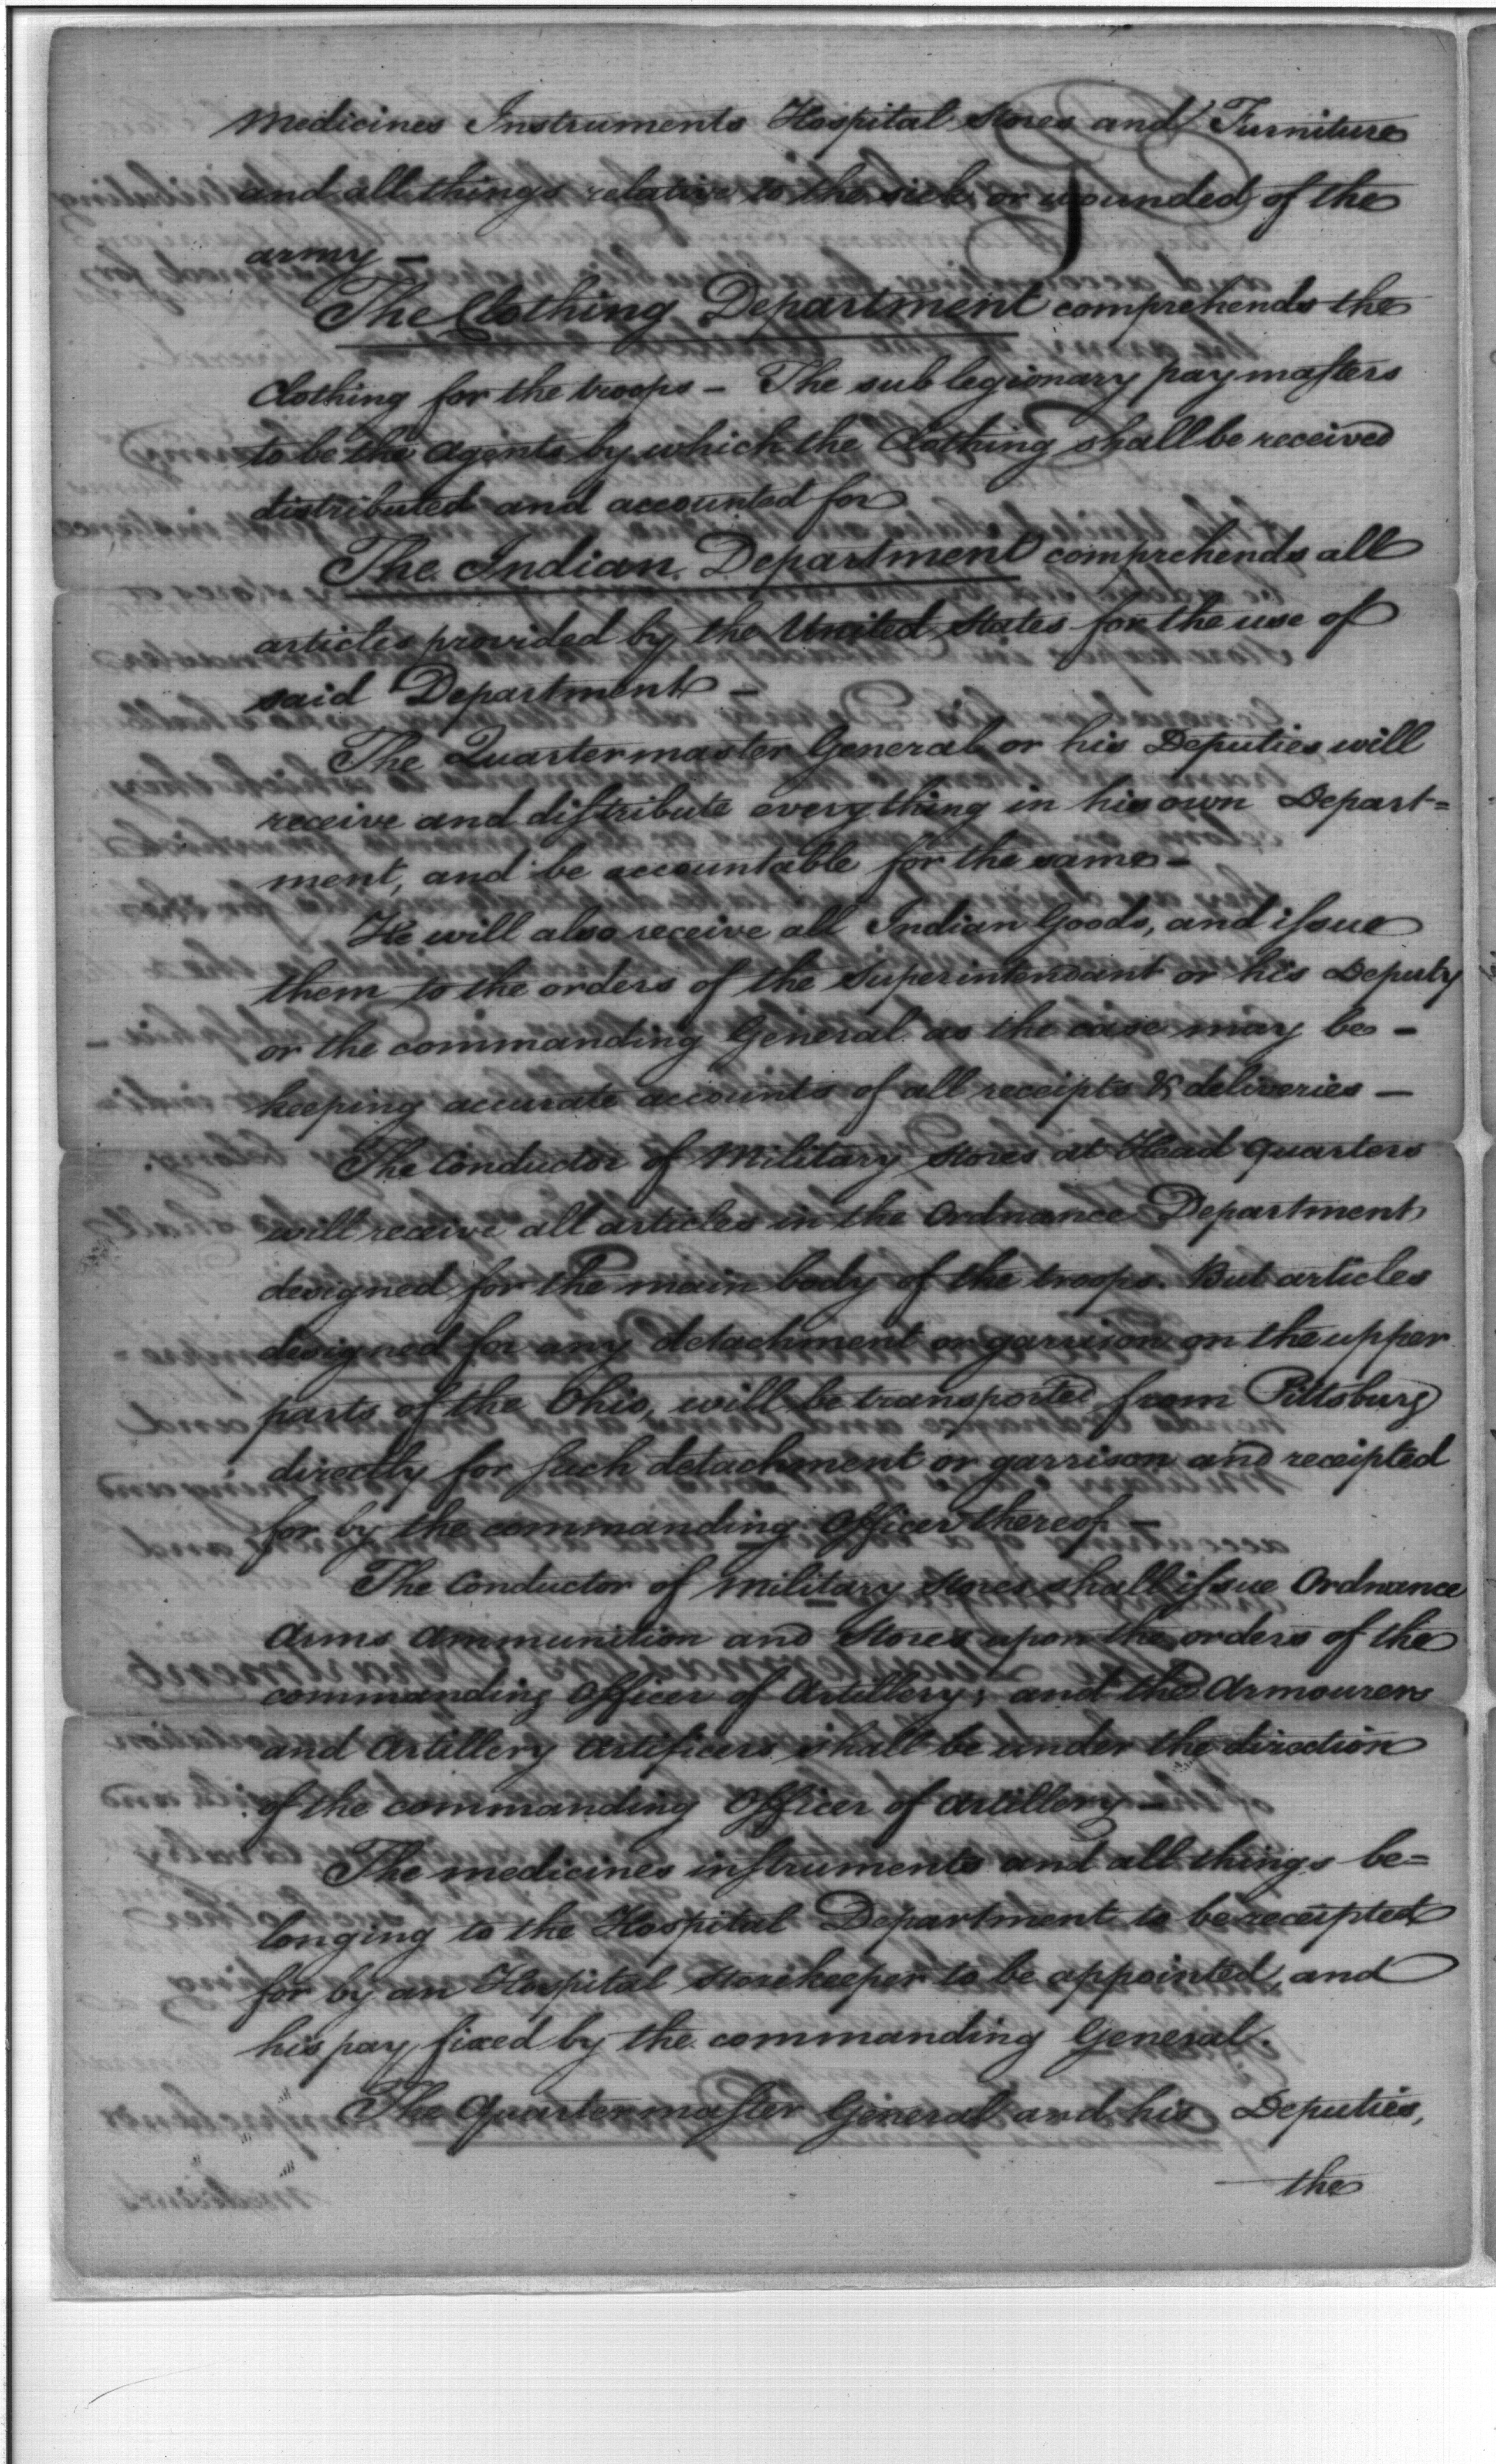 Medicines Instruments Hospital Stores and Furniture
and all things relative to the sick or wounded of the
army —
The Clothing Department comprehends the
Clothing for the troops – The sub legionary paymasters
to be the Agents by which the Clothing shall be received
distributed and accounted for
The Indian Department comprehends all
articles provided by the United States for the use of
said Department –
The Quartermaster General or his Deputies will
receive and distribute every thing in his own Depart=
ment, and be accountable for the same –
He will also receive all Indian Goods, and issue
them to the orders of the Superintendant or his Deputy
or the commanding General as the case may be –
keeping accurate accounts of all receipts & deliveries —
The Conductor of Military Stores at Head Quarters
will receive all articles in the Ordnance Department
designed for the main body of the troops. But articles
designed for any detachment or garrison on the upper
parts of the Ohio, will be transported from Pittsburg
directly for such detachment or garrison and receipted
for by the commanding Officer thereof —
The Conductor of Military Stores shall issue Ordnance
Arms Ammunition and Stores upon the orders of the
commanding Officer of Artillery; and the Armourers
and Artillery Artificers shall be under the direction
of the commanding Officer of Artillery —
The medicines instruments and all things be=
longing to the Hospital Department to be receipted
for by an Hospital Storekeeper to be appointed, and
his pay fixed by the commanding General.
The Quartermaster General and his Deputies,
the